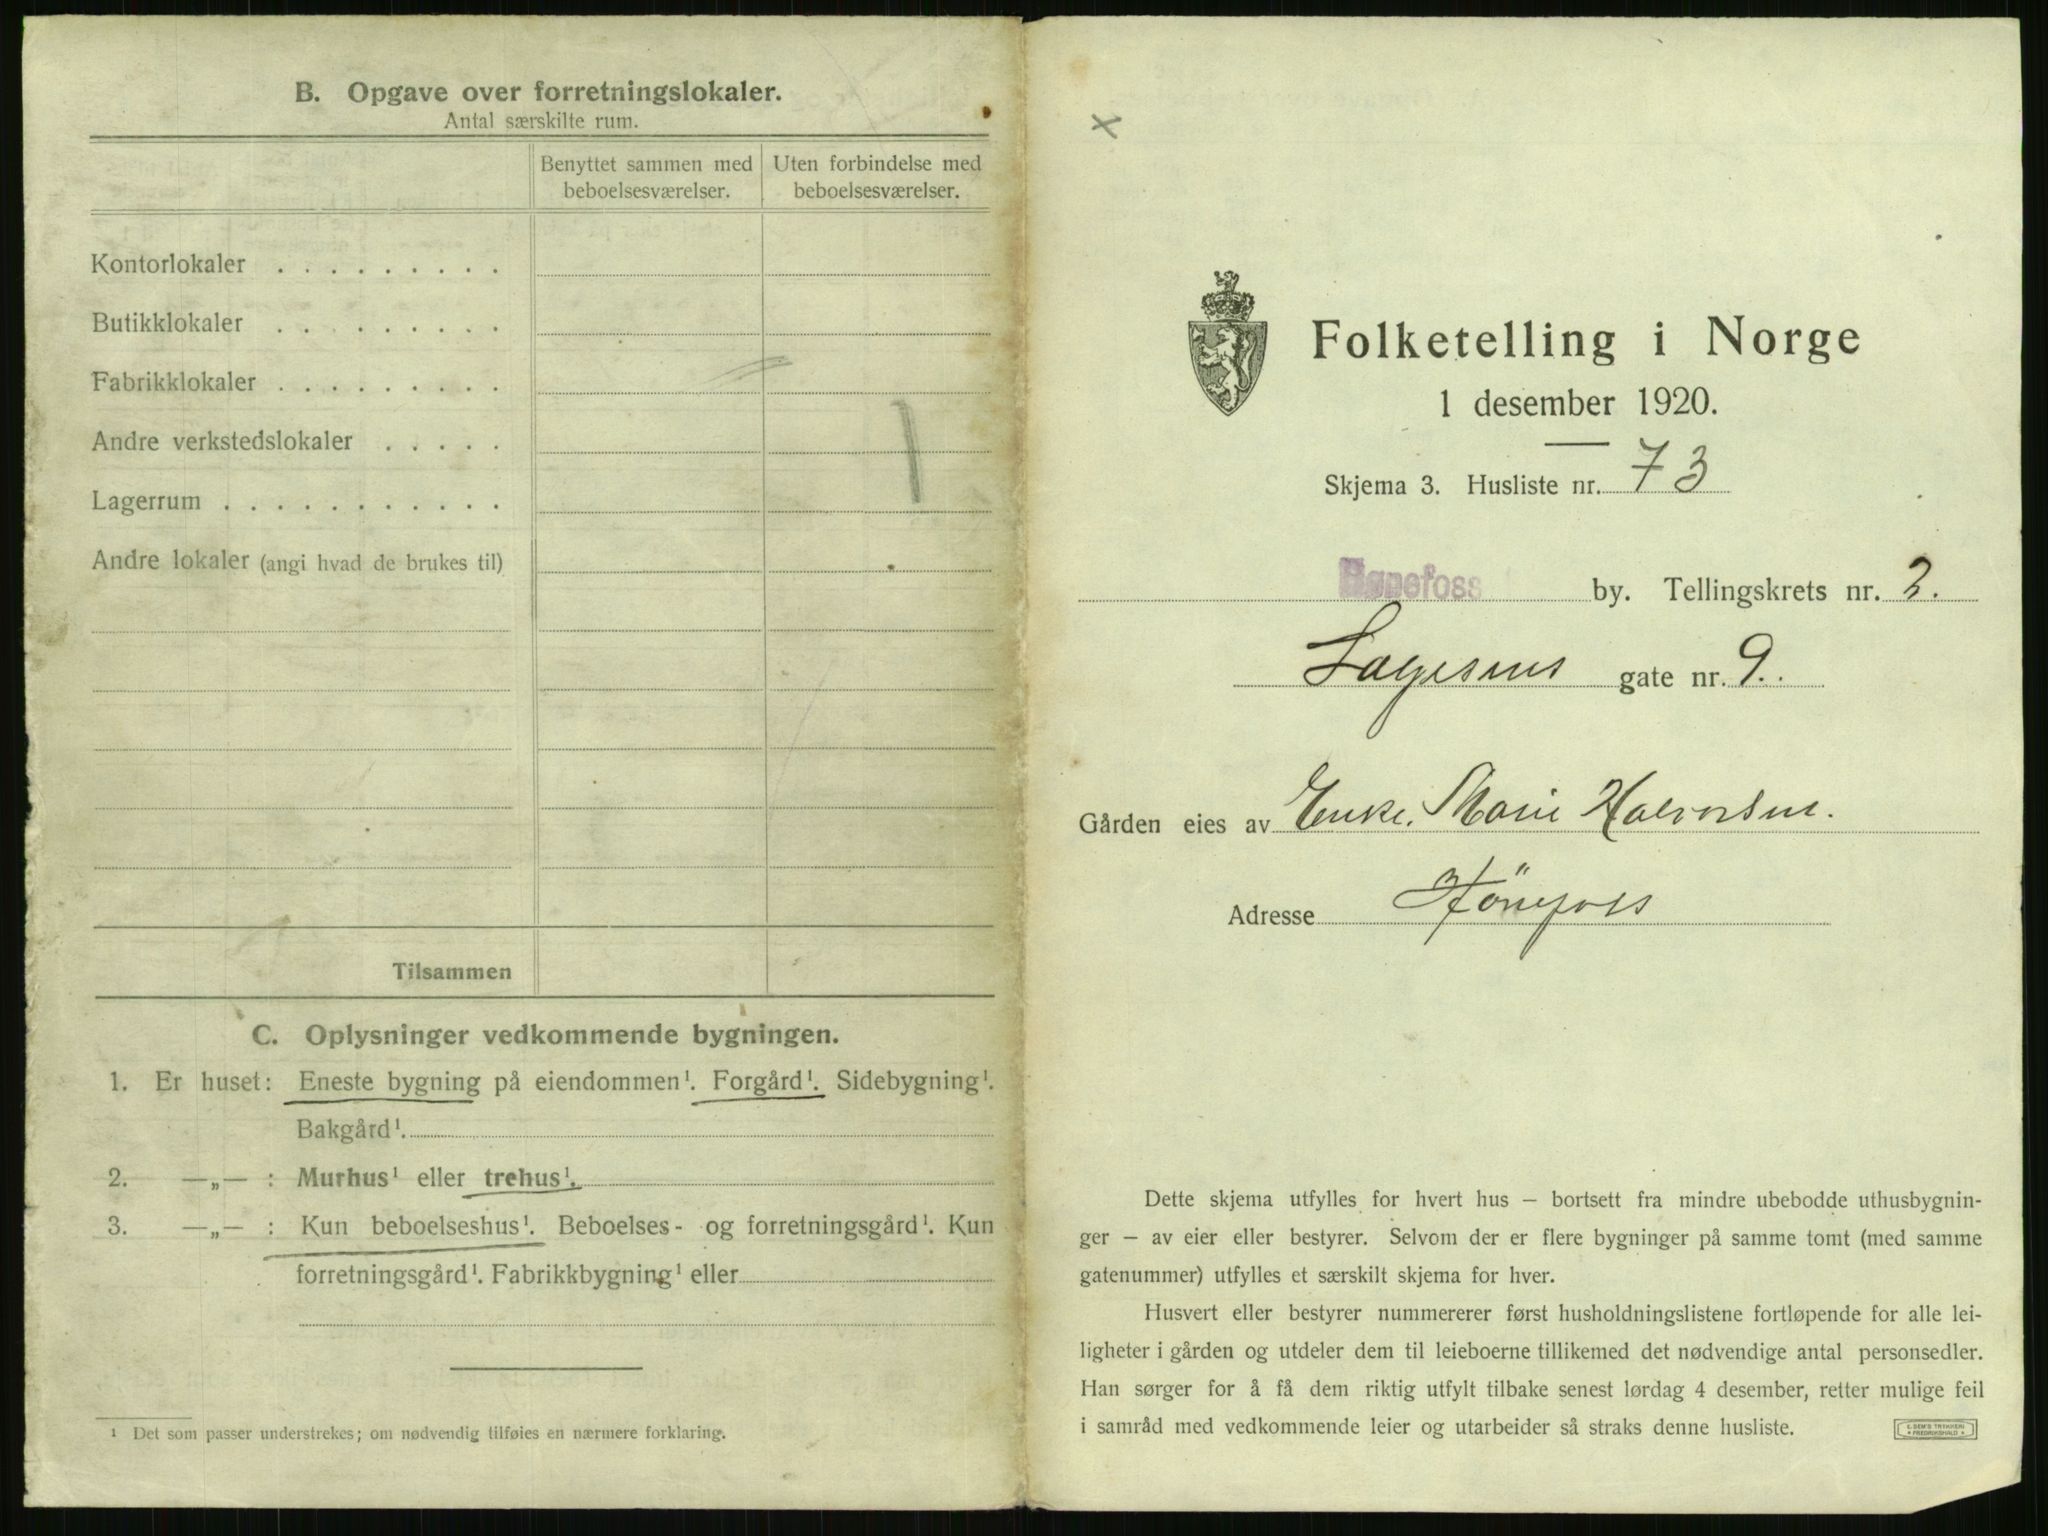 B. Opgave over forretningslokaler.
Antal særskilte rum.
Benyttet sammen med beboelsesværelser.
Uten forbindelse med beboelsesværelser.
Kontorlokaler . . . . . . . . .
Butikklokaler . . . . . . . . .
Fabrikklokaler . . . . . . . . .
Andre verkstedslokaler . . . . .
Lagerrum . . . . . . . . . . .
Andre lokaler (angi hvad de brukes til)
Tilsammen
C. Oplysninger vedkommende bygningen.
1. Er huset: Eneste bygning på eiendommen¹. Forgård¹. Sidebygning¹.
Bakgård¹.
2. —„— : Murhus¹ eller trehus¹.
3. —„— : Kun beboelseshus¹. Beboelses- og forretningsgård¹. Kun
forretningsgård¹. Fabrikkbygning¹ eller
¹ Det som passer understrekes; om nødvendig tilføies en nærmere forklaring.
x
Folketelling i Norge
1 desember 1920.
Skjema 3. Husliste nr. 73
Hønefoss by. Tellingskrets nr. 2.
gate nr. 9.
Gården eies av Enke. Marie Halvorsen.
Adresse Hönefoss
Dette skjema utfylles for hvert hus — bortsett fra mindre ubebodde uthusbygnin-
ger — av eier eller bestyrer. Selvom der er flere bygninger på samme tomt (med samme
gatenummer) utfylles et særskilt skjema for hver.
Husvert eller bestyrer nummererer først husholdningslistene fortløpende for alle lei-
ligheter i gården og utdeler dem til leieboerne tillikemed det nødvendige antal personsedler.
Han sørger for å få dem riktig utfylt tilbake senest lørdag 4 desember, retter mulige feil
i samråd med vedkommende leier og utarbeider så straks denne husliste.
E. SEM'S TRYKKERI
FREDRIKSHALD